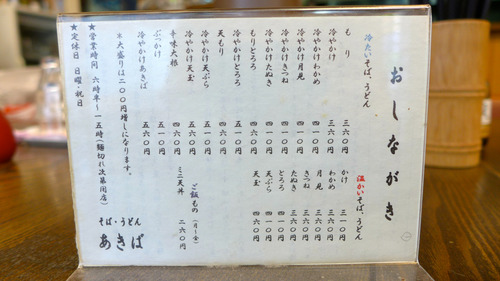 おしながき
冷たいそば、うどん
もり 三六〇円
冷やかけ 三六〇円
冷やかけわかめ 四一〇円
冷やかけ月見 四一〇円
冷やかけきつね 四一〇円
冷やかけたぬき 四一〇円
もりとろろ 四六〇円
冷やかけとろろ 五一〇円
天もり
冷やかけ天ぷら 五一〇円
冷やかけ天玉 五六〇円
辛味大根 四六〇円
ぶっかけ 五一〇円
冷やかけあきば 五六〇円
温かいそば、うどん
かけ 三一〇円
わかめ 三六〇円
月見 三六〇円
きつね 三六〇円
たぬき 三六〇円
とろろ 四六〇円
天ぷら 四六〇円
天玉
ご飯もの（月～金）
ミニ天丼 二六〇円
※大盛りは二〇〇円増しになります。
★営業時間 六時半～一五時（麺切れ次第閉店）
★定休日 日曜・祝日
そば・うどん
あきば